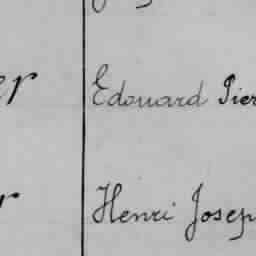 er Edouard Pier
r Henri Josep